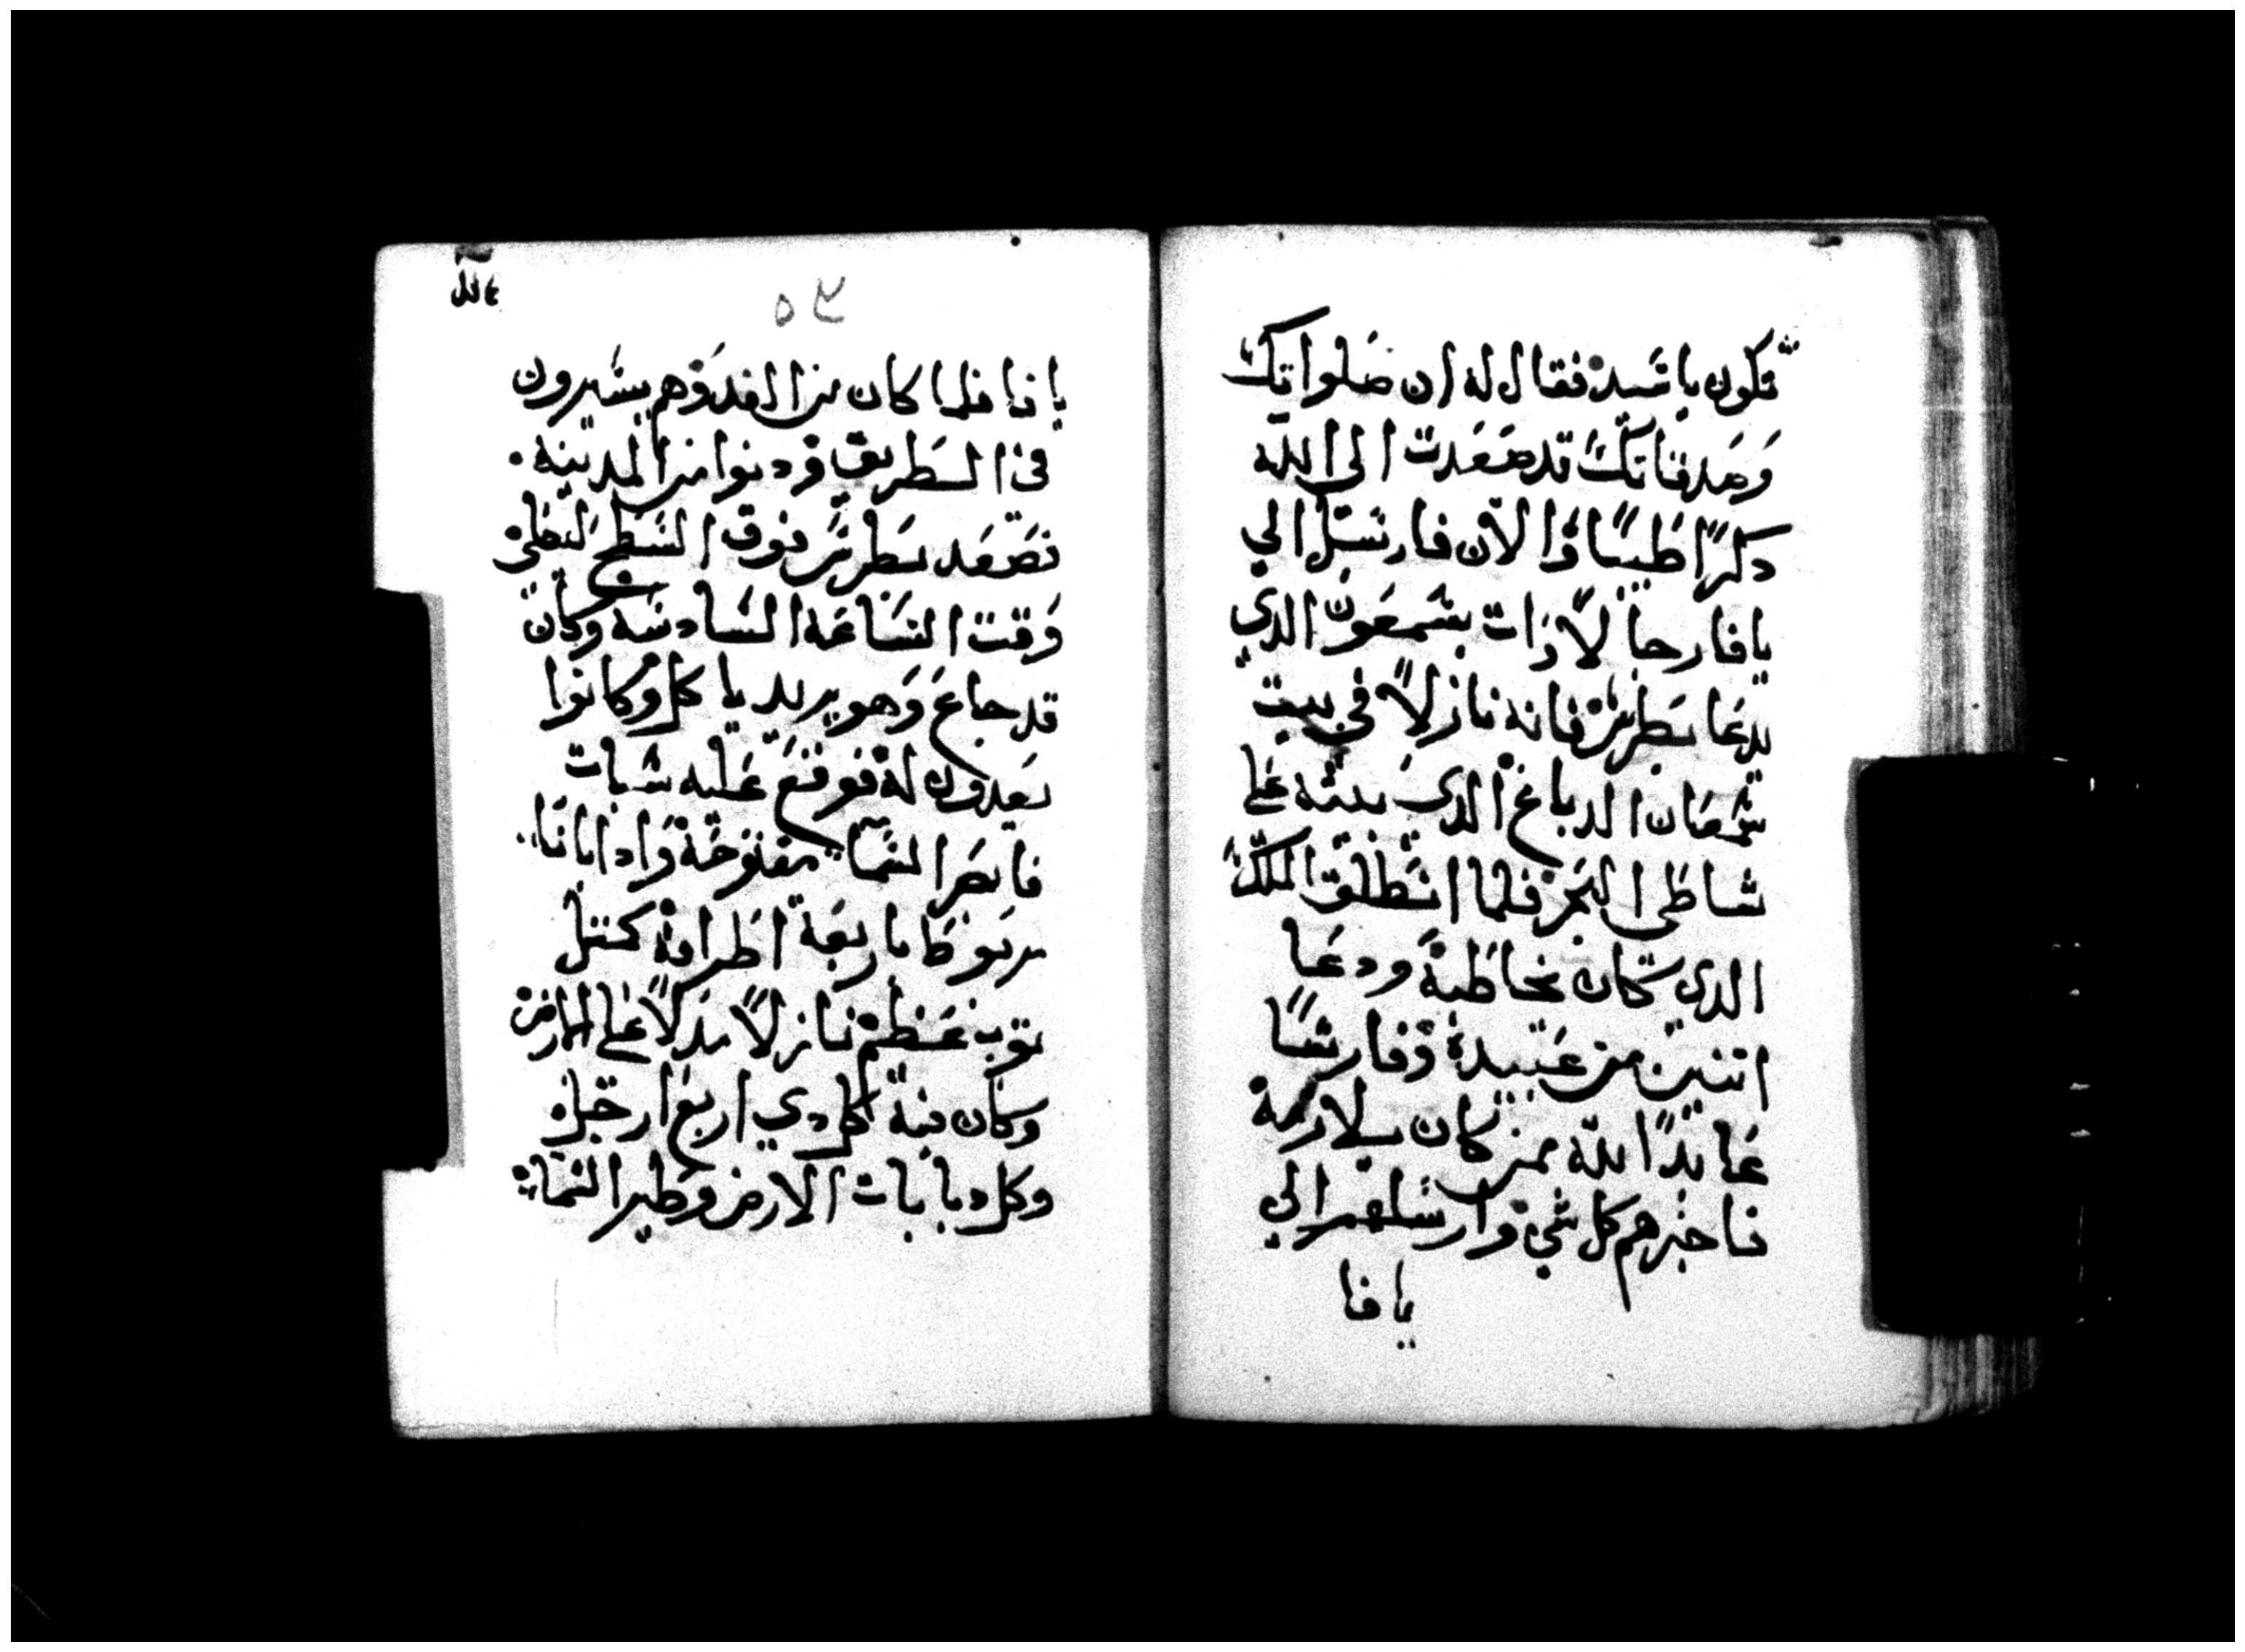 تكون يا سيد فقال له ان صلواتك
وصدقاتك قد صعدت الى الله
دكرًا طيبًا والان فارسل الي
يافا رجالًا ذات بشمعون الدي
يدعا بطرس فانه نازلًا في بيت
شمعان الدباغ الدي بيته علي
شاطى البحر فلما انطلق الملاك
الدي كان يخاطبه ودعا
اتنين من عبيده وفارسًا
عابدًا لله ممن كان يلازمه
فاخبرهم كل شي وارسلهم الي
يافا
٥٣
يافا فلما كان من الغد وهم يسيرون
في الطريق ودنوا من المدينه
فصعد بطرس فوق السطح ليصلي
وقت الساعه السادسه وكان
قد جاع وهو يريد ياكل وكانوا
يعدون له فوقع عليه سبات
فابصر السما مفتوحه واذا بانا
مربوطا باربعة اطرافه كمتل
توب عظيم نازلًا مدلًا على الارض
وكان فيه كل دي اربع ارجل
وكل دبابات الارض وطير السما